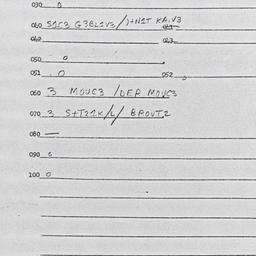 030 0
040 S1C3 G3BL1V3/)+N1T KA.V3 041
042 043
050 0
051 .0 052
060 3 MOUC3 /DER MOUC3
070 3 S+T21K/L/ BROUT2
080 —
090 c
100 0